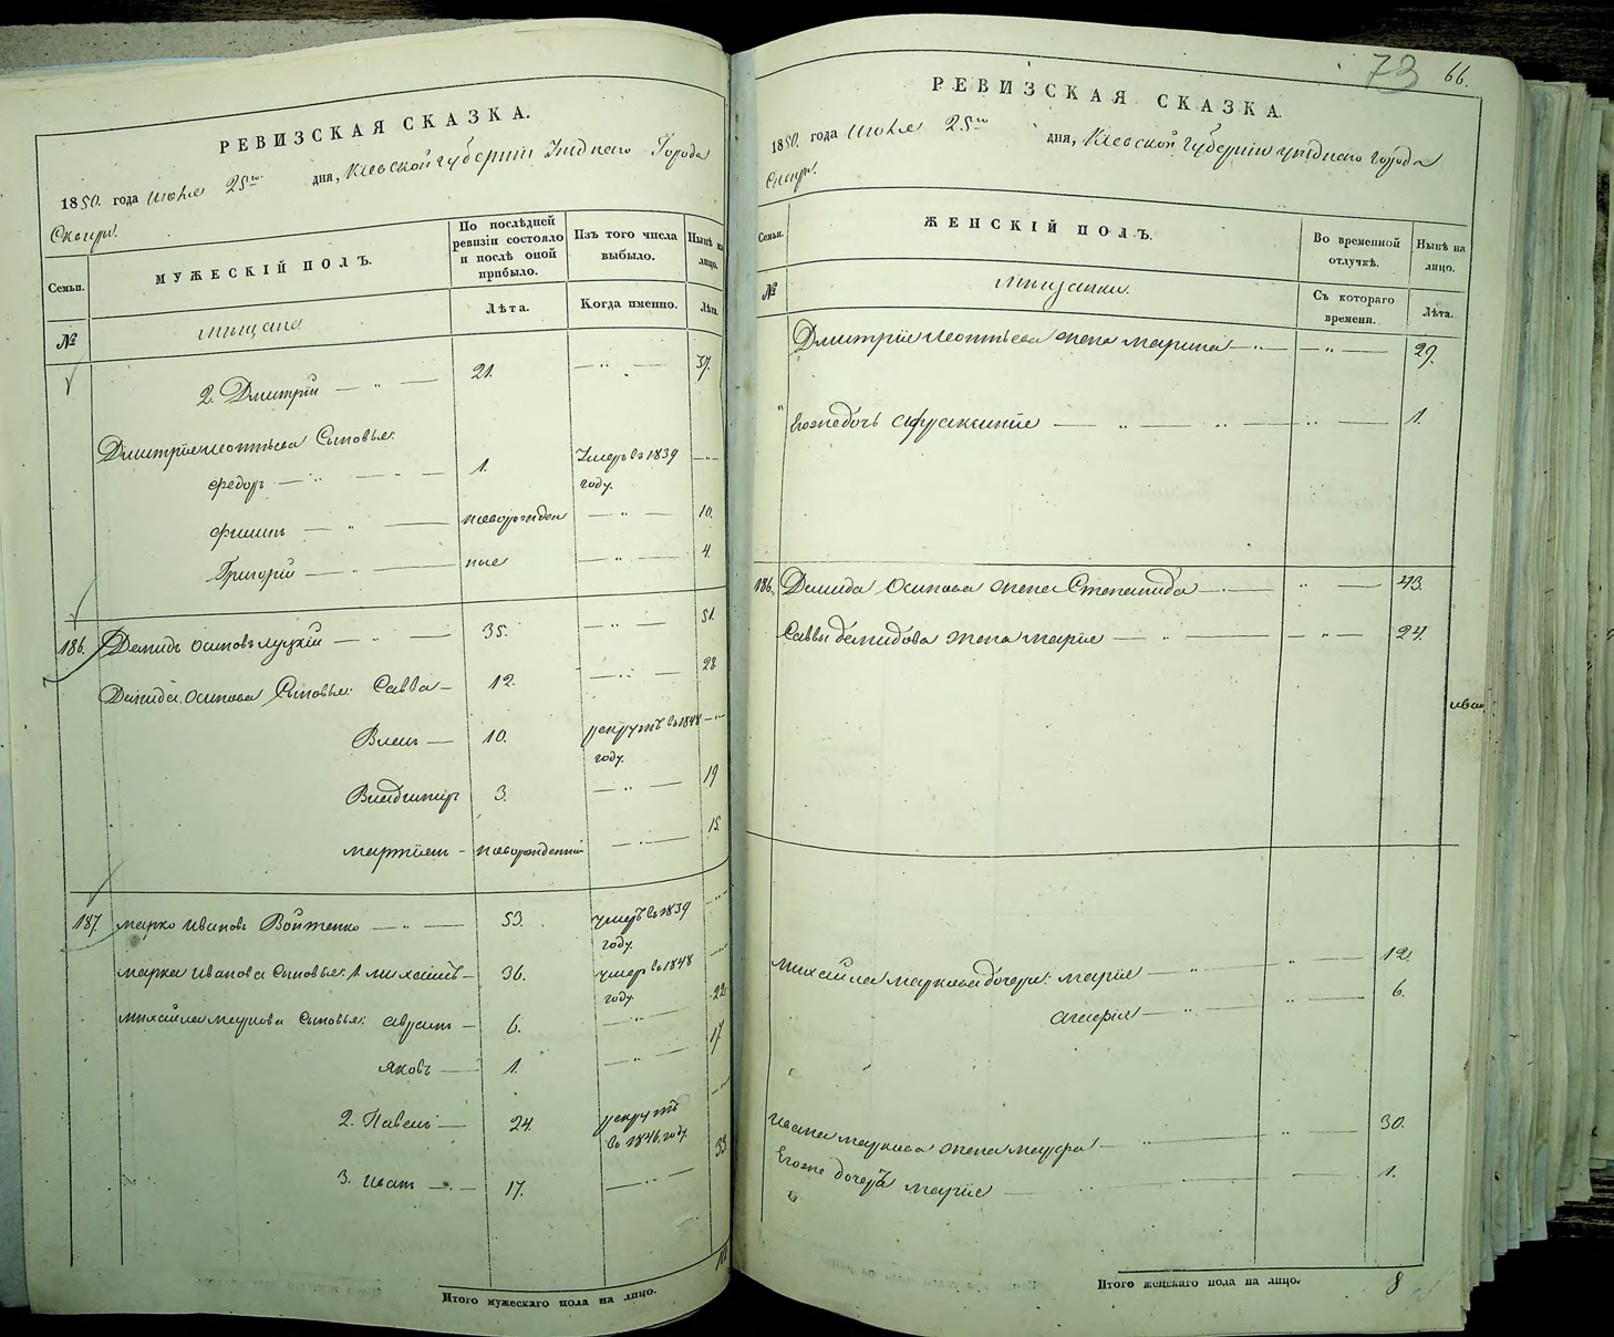 РЕВИЗСКАЯ СКАЗКА.
1850. года Июля 25го дня, Кіевской губерніи Уезднаго Города
Сквиры.
Семьи.
МУЖЕСКІЙ ПОЛЪ.
По послѣдней ревизіи состояло и послѣ оной прибыло.
Изъ того числа выбыло.
Нынѣ на лицо.
№
мещане
Лѣта.
Когда именно.
Лѣта.
2. Дмитрій — „ — 21. — „ — 37.
Дмитрія Леонтьева Сыновья:
Федоръ — „ — 1. Умеръ въ 1839 году. — „ —
Филипъ — „ — новорожден — „ — 10.
Григорій — „ — ные — „ — 4.
186. Демидъ Осиповъ Луцкій — „ — 35. — „ — 51.
Демида Осипова Сыновья: Савва — 12. — „ — 28
Власъ — 10. рекрутъ въ 1848 году. — „ —
Владимиръ 3. — „ — 19
новорожденный — „ — 15.
187. Марко Ивановъ Войтенко — „ — 53. умеръ въ 1839 году. — „ —
Марка Иванова Сыновья: 1. Михайлъ — 36. умеръ въ 1848 году. — „ —
Михайла Маркова Сыновья: Аврамъ — 6. — „ — 22
Яковъ — 1. — „ — 17
2. Павелъ — 24. рекрутъ въ 1846 году. — „ —
3. Иванъ — „ — 17. — „ — 33
Итого мужескаго пола на лицо.
73 66.
РЕВИЗСКАЯ СКАЗКА.
1850. года Июля 25го дня, Кіевской губерніи уезднаго города
Сквиры.
Семьи.
ЖЕНСКІЙ ПОЛЪ.
Во временной отлучкѣ.
Нынѣ на лицо.
№
мещанки.
Съ котораго времени.
Лѣта.
Дмитрія Леонтьева жена Марина — „ — — „ — 29.
Его же дочь Афраксинія — „ — „ — „ — 1.
186. Демида Осипова жена Степанида — „ — 43.
Саввы Демидова жена Марія — „ — — „ — 24.
Михайла Маркова дочери: Марія — „ — „ — 12.
— „ — „ — 6.
Ивана Маркова жена Марфа — „ — „ — 30.
Его же дочерь Марія — „ — 1.
Итого женскаго пола на лицо. 8